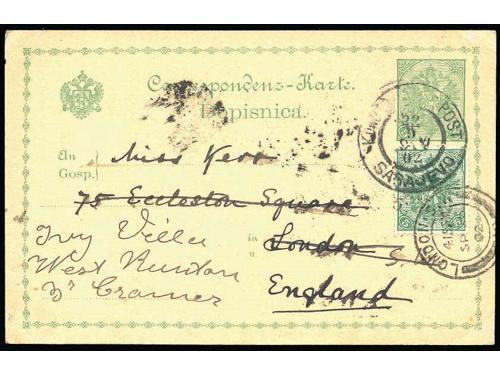 Correspondenz-Karte.
Dopisnica.
An
Gosp.)
Miss Kerr
75 Eccleston Square
in
u
London S.
England
Ivy Villa
West Runton
Nr Cromer
POST
SARAJEVO
02
LONDON
SP
02